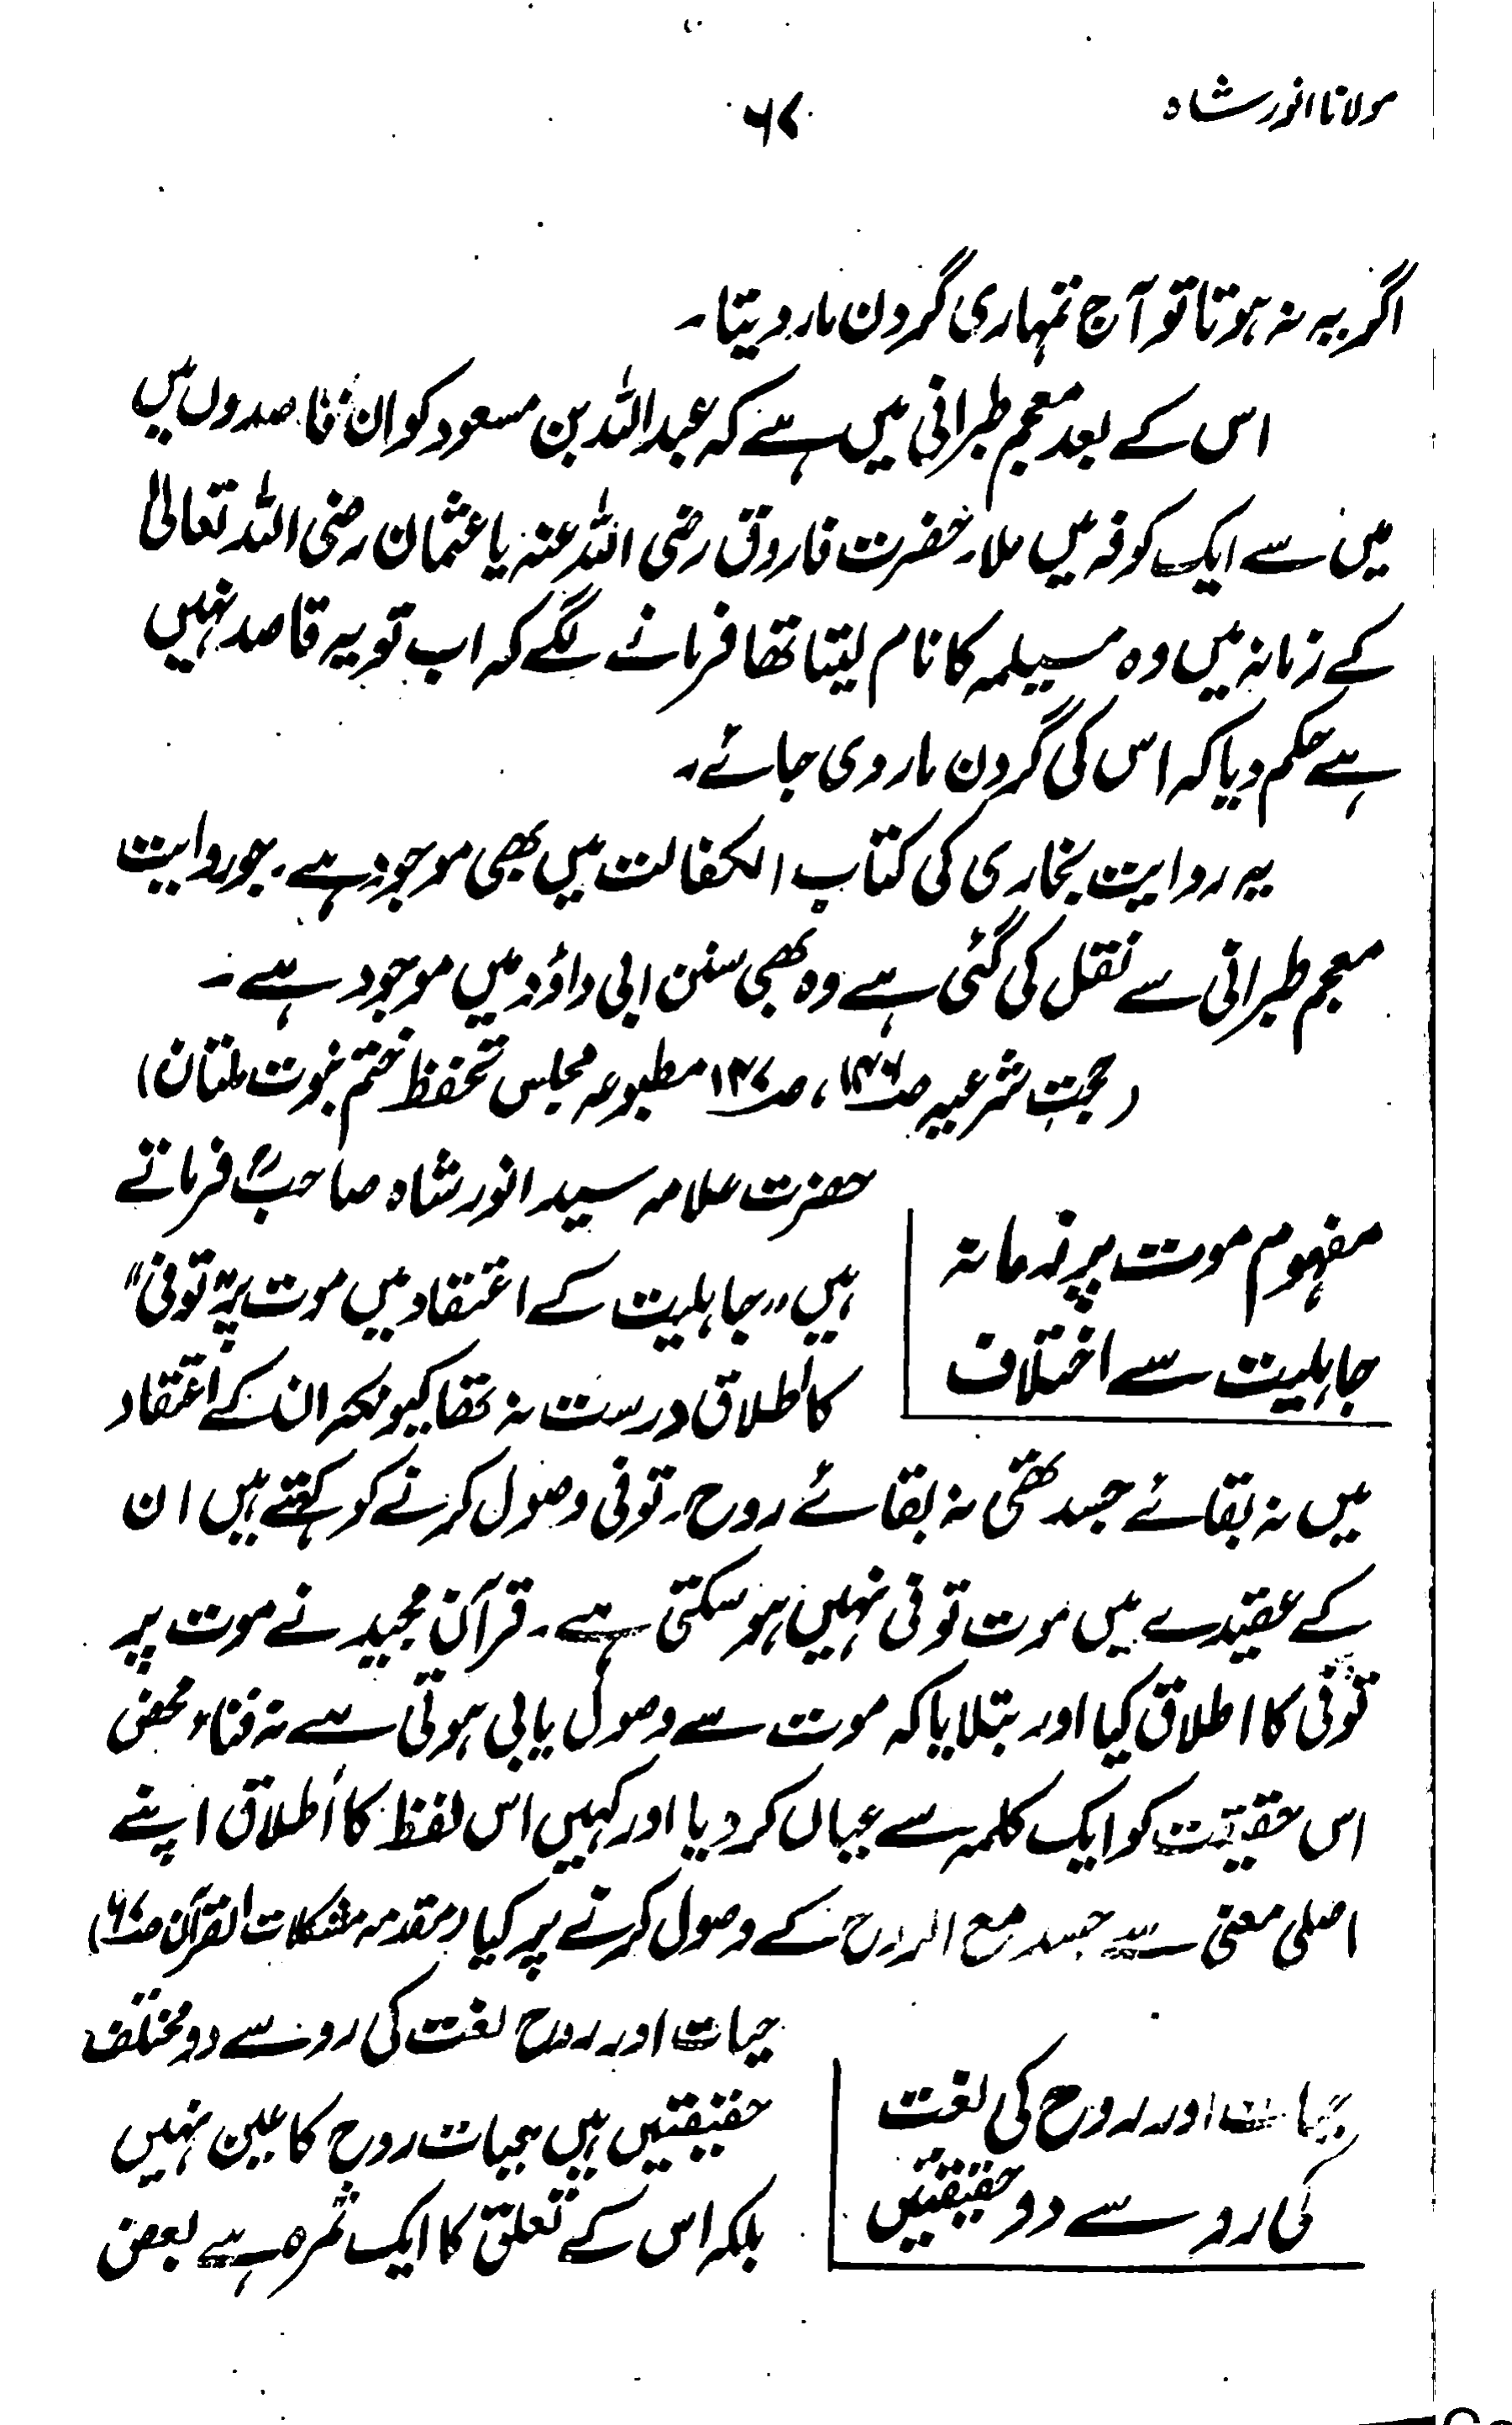 مولانا انور شاہ
۶۷
اگر یہ نہ ہوتا تو آج تمہاری گردن مار دیتا۔
اس کے بعد معجم طبرانی میں ہے کہ عبداللہ بن مسعود کو ان قاصدوں میں
میں سے ایک کوفہ میں ملا۔ حضرت فاروق رضی اللہ عنہ یا عثمان رضی اللہ تعالیٰ
کے زمانہ میں وہ مسیلمہ کا نام لیتا تھا فرمانے لگے کہ اب تو یہ قاصد نہیں
ہے حکم دیا کہ اس کی گردن مار دی جائے۔
یہ روایت بخاری کی کتاب الکفالت میں بھی موجود ہے۔ جو روایت
معجم طبرانی سے نقل کی گئی ہے وہ بھی سنن ابی داؤد میں موجود ہے۔
(حجت شرعیہ صـ۱۳۶، صـ۱۳۷ مطبوعہ مجلس تحفظ ختم نبوت ملتان)
مفہوم موت پر زمانہ
جاہلیت سے اختلاف
حضرت علامہ سید انور شاہ صاحبؒ فرماتے
ہیں ”جاہلیت کے اعتقاد میں موت پر ”توفی“
کا اطلاق درست نہ تھا کیونکہ ان کے اعتقاد
میں نہ بقائے جسد تھی نہ بقائے روح۔ توفی وصول کرنے کو کہتے ہیں ان
کے عقیدے میں موت توفی نہیں ہو سکتی ہے۔ قرآن مجید نے موت پر
توفی کا اطلاق کیا اور بتلایا کہ موت سے وصول یابی ہوتی ہے نہ فناء محض
اس حقیقت کو ایک کلمہ سے عیاں کر دیا اور کہیں اس لفظ کا اطلاق اپنے
اصلی معنی سے جسد مع الروح کے وصول کرنے پر کیا (مقدمہ مشکلات القرآن صـ۶۷)
حیات اور روح کی لغت
کی رو سے دو حقیقتیں
حیات اور روح لغت کی رو سے دو مختلف
حقیقتیں ہیں حیات روح کا عین نہیں
بلکہ اس کے تعلق کا ایک ثمرہ ہے بعض